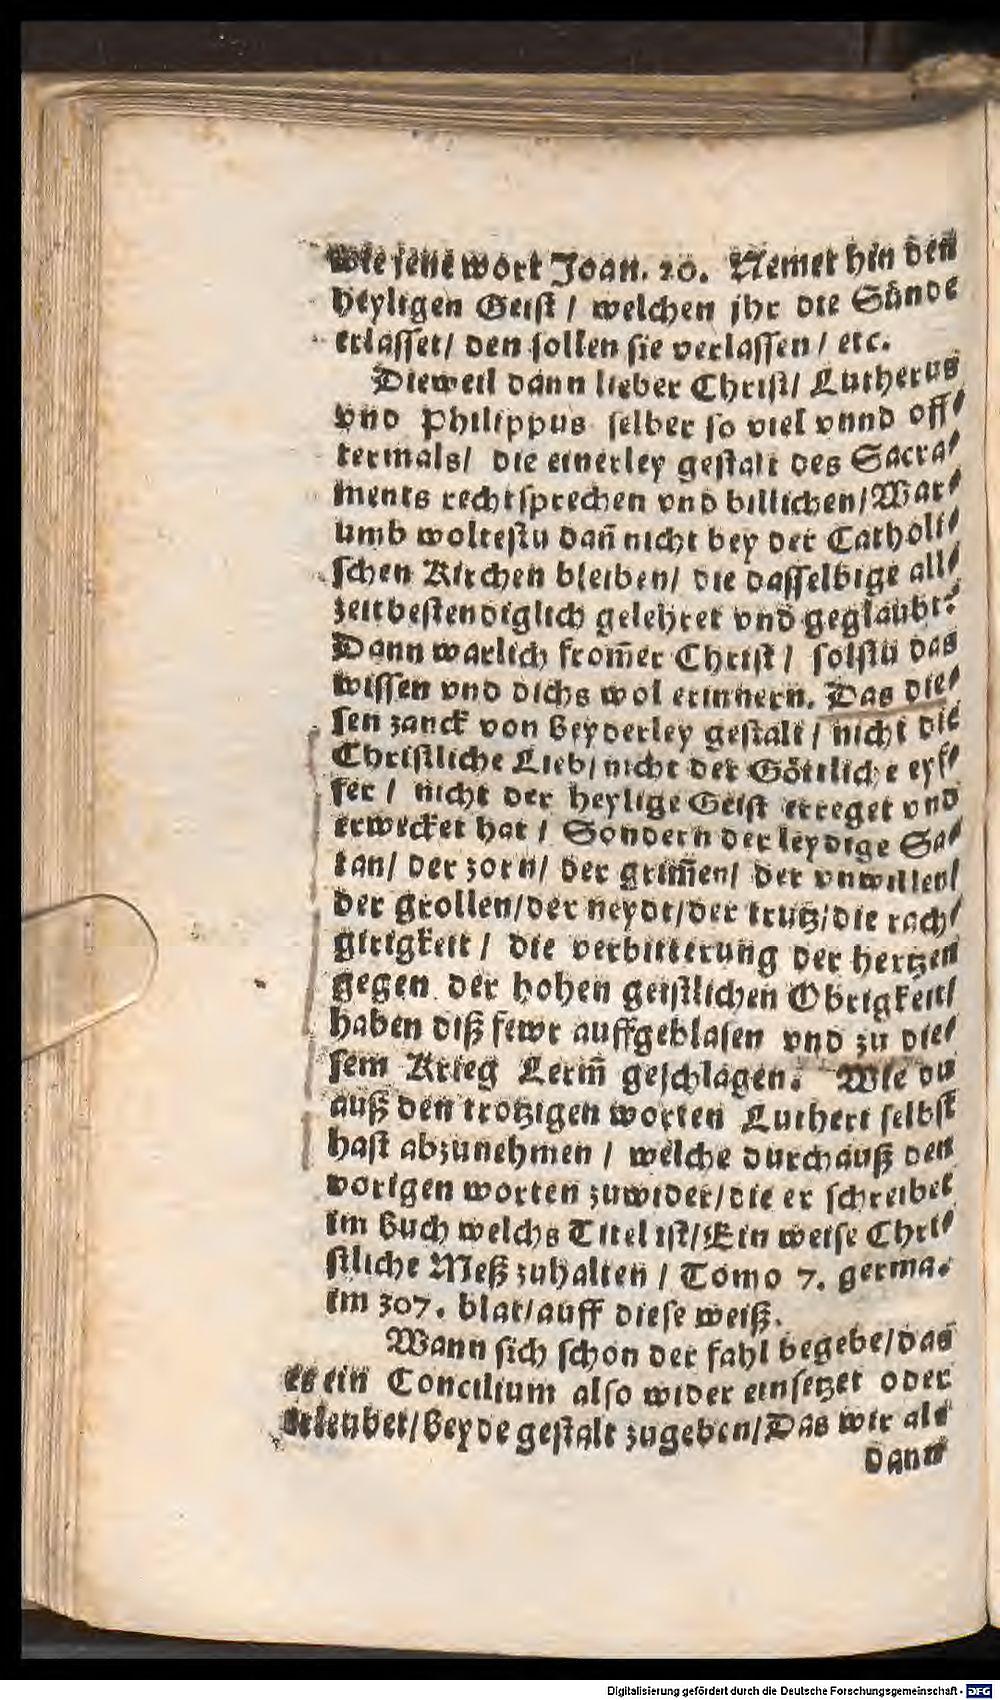 wie jene wort Joan. 20. Nemet hin den
heyligen Geist / welchen jhr die Sünde
erlasset/ den sollen sie verlassen / etc.
Dieweil dann lieber Christ/ Lutherus
vnd Philippus selber so viel vnnd off⸗
termals/ die einerley gestalt des Sacra⸗
ments rechtsprechen vnd billichen/ War⸗
umb woltestu dañ nicht bey der Catholi⸗
schen Kirchen bleiben/ die dasselbige all⸗
zeit bestendiglich gelehret vnd geglaubt?
Dann warlich from̃er Christ / solstu das
wissen vnd dichs wol erinnern. Das die⸗
sen zanck von Beyderley gestalt / nicht die
Christliche Lieb/ nicht der Göttliche eyf⸗
fer / nicht der heylige Geist erreget vnd
erwecket hat / Sondern der leydige Sa⸗
tan/ der zorn/ der grim̃en/ der vnwillen/
der grollen/der neydt/der trutz/die rach⸗
girigkeit / die verbitterung der hertzen
gegen der hohen geistlichen Obrigkeit/
haben diß fewr auffgeblasen vnd zu die⸗
sem Krieg Lerm̃ geschlagen. Wie du
auß den trotzigen worten Lutheri selbst
hast abzunehmen / welche durchauß den
vorigen worten zuwider/die er schreibet
im Buch welchs Titel ist/Ein weise Chri⸗
stliche Meß zuhalten / Tomo 7. germa.
im 307. blat/auff diese weiß.
Wann sich schon der fahl begebe/das
es ein Concilium also wider einsetzet oder
erleubet/Beyde gestalt zugeben/Das wir als
dann
Digitalisierung gefördert durch die Deutsche Forschungsgemeinschaft - DFG